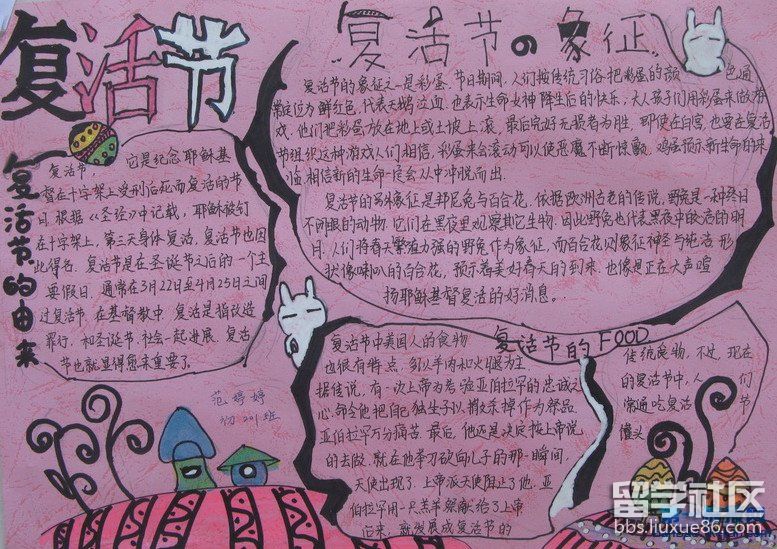 复活节
复活节的由来
复活节,它是纪念耶稣基
督在十字架上受刑后死而复活的节
日.根据《圣经》中记载,耶稣被钉
在十字架上,第三天身体复活,复活节也因
此得名.复活节是在圣诞节之后的一个主
要假日.通常在3月22日至4月25日之间
过复活节.在基督教中,复活是指改造
罪行.和圣诞节社会一起进展.复活
节也就显得愈来重要了.
范婷婷
初201班
复活节の象征
复活节的象征之一是彩蛋.节日期间,人们按传统习俗把彩蛋的颜色通
常定位为鲜红色,代表天鹅泣血.也表示生命女神降生后的快乐;大人孩子们用彩蛋来做游
戏.他们把彩蛋放在地上或土坡上滚,最后完好无损者为胜.即使在白宫,也要在复活
节组织这种游戏人们相信,彩蛋来会滚动可以使恶魔不断惊颤.鸡蛋预示新生命的来
临,相信新的生命一定会从中冲脱而出.
复活节的另外象征是邦尼兔与百合花,依据欧洲古老的传说,野兔是一种终日
不闭眼的动物.它们在黑夜里观察其它生物.因此野兔也代表黑夜中皎洁的明
月.人们将春天繁殖力强的野兔作为象征,而百合花则象征神圣与纯洁.形
状像喇叭的百合花,预示着美好春天的到来.也像是正在大声喧
扬耶稣基督复活的好消息。
复活节的FOOD
复活节中美国人的食物
也很有特点,多以羊肉和火腿为主.
据传说,有一次上帝为考验亚伯拉罕的忠诚之
心,命令他把自己独生子以撒杀掉作为祭品
亚伯拉罕万分痛苦.最后,他还是决定按上帝说
的去做.就在他举刀砍向儿子的那一瞬间,
天使出现了.上帝派天使阻止了他.亚
伯拉罕用一只羔羊祭献给了上帝
后来,就发展成复活节的
传统食物,不过,现在
的复活节中,人们
常通吃复活节
馒头
留学社区
bbs.liuxue86.com